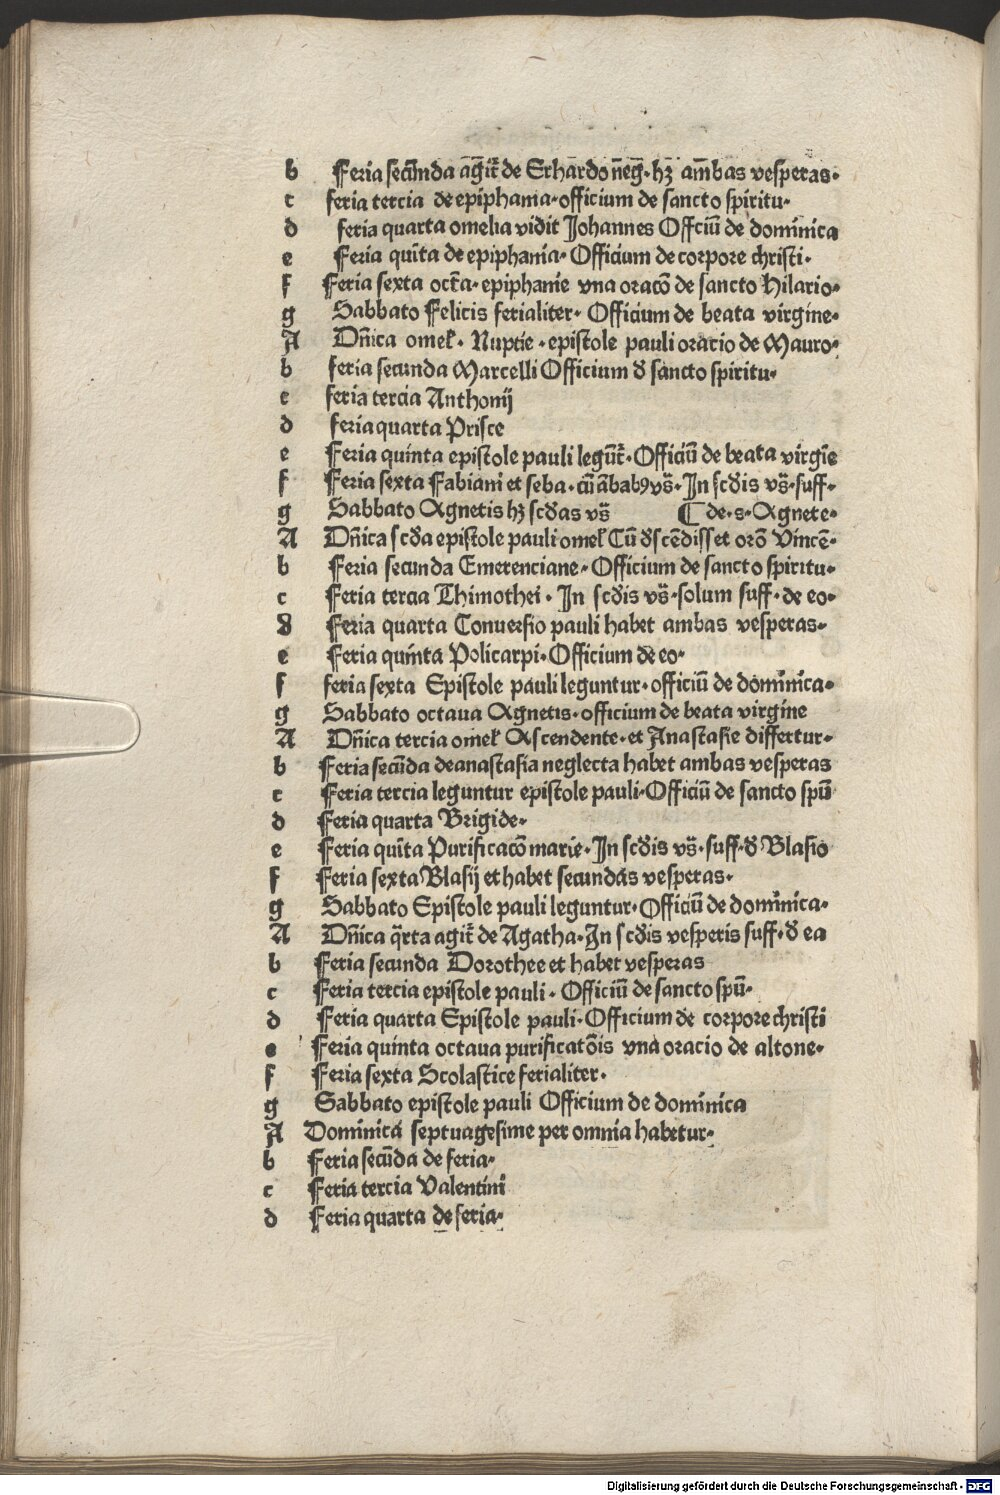 b Feria secūnda āgit͛ de Erhardo nēg̅. hꝫ am̄bas vesperas.
c feria tercia de epiphania. officium de sancto spiritu.
d feria quarta omelia vidit Johannes Offciū de dominica
e Feria quīta de epiphania. Officium de corpore christi.
f Feria sexta octa̅. epiphanie vna oracō de sancto Hilario.
g Sabbato Felicis ferialiter. Officium de beata virgine.
A Dn̄ica omeł. Nuptie. epistole pauli oracio de Mauro.
b feria secunda Marcelli Officium ꝺ̄ sancto spiritu.
c feria tercia Anthonij
d feria quarta Prisce
e Feria quinta epistole pauli legūt͛. Officiū de beata virgīe
f Feria sexta Fabiani et seba. cū ābabꝰ vs̄. In scd̄is vs̄. suff.
g Sabbato Agnetis hꝫ scd̄as vs̄ ⸿ de. s. Agnete.
A Dn̄ica scd̄a epistole pauli omeł Cū ꝺ̄scēdisset orō Vincē.
b Feria secunda Emerenciane. Officium de sancto spiritu.
c Feria tercia Thimothei. In scd̄is vs̄. solum suff. de eo.
d Feria quarta Conuersio pauli habet ambas vesperas.
e Feria quinta Policarpi. Officium de eo.
f feria sexta Epistole pauli leguntur. officiū de dominica.
g Sabbato octaua Agnetis. officium de beata virgine
A Dn̄ica tercia omeł Ascendente. et Anastasie differtur.
b Feria secūda de anastasia neglecta habet ambas vesperas
c Feria tercia leguntur epistole pauli. Officiū de sancto spū
d Feria quarta Brigide.
e Feria quīta Purificacō marie. In scd̄is vs̄. suff. ꝺ̄ Blasio
f Feria sexta Blasij et habet secundas vesperas.
g Sabbato Epistole pauli leguntur. Officiū de dominica.
A Dn̄ica q̄rta agit͛ de Agatha. In scd̄is vesperis suff. ꝺ̄ ea
b Feria secunda Dorothee et habet vesperas
c Feria tercia epistole pauli. Officiū de sancto spū.
d Feria quarta Epistole pauli. Officium de corpore christi
e Feria quinta octaua purificatōis vna oracio de altone.
f Feria sexta Scolastice ferialiter.
g Sabbato epistole pauli Officium de dominica
A Dominica septuagesime per omnia habetur.
b Feria secūda de feria.
c Feria tercia Valentini
d Feria quarta de feria.
Digitalisierung gefördert durch die Deutsche Forschungsgemeinschaft - DFG